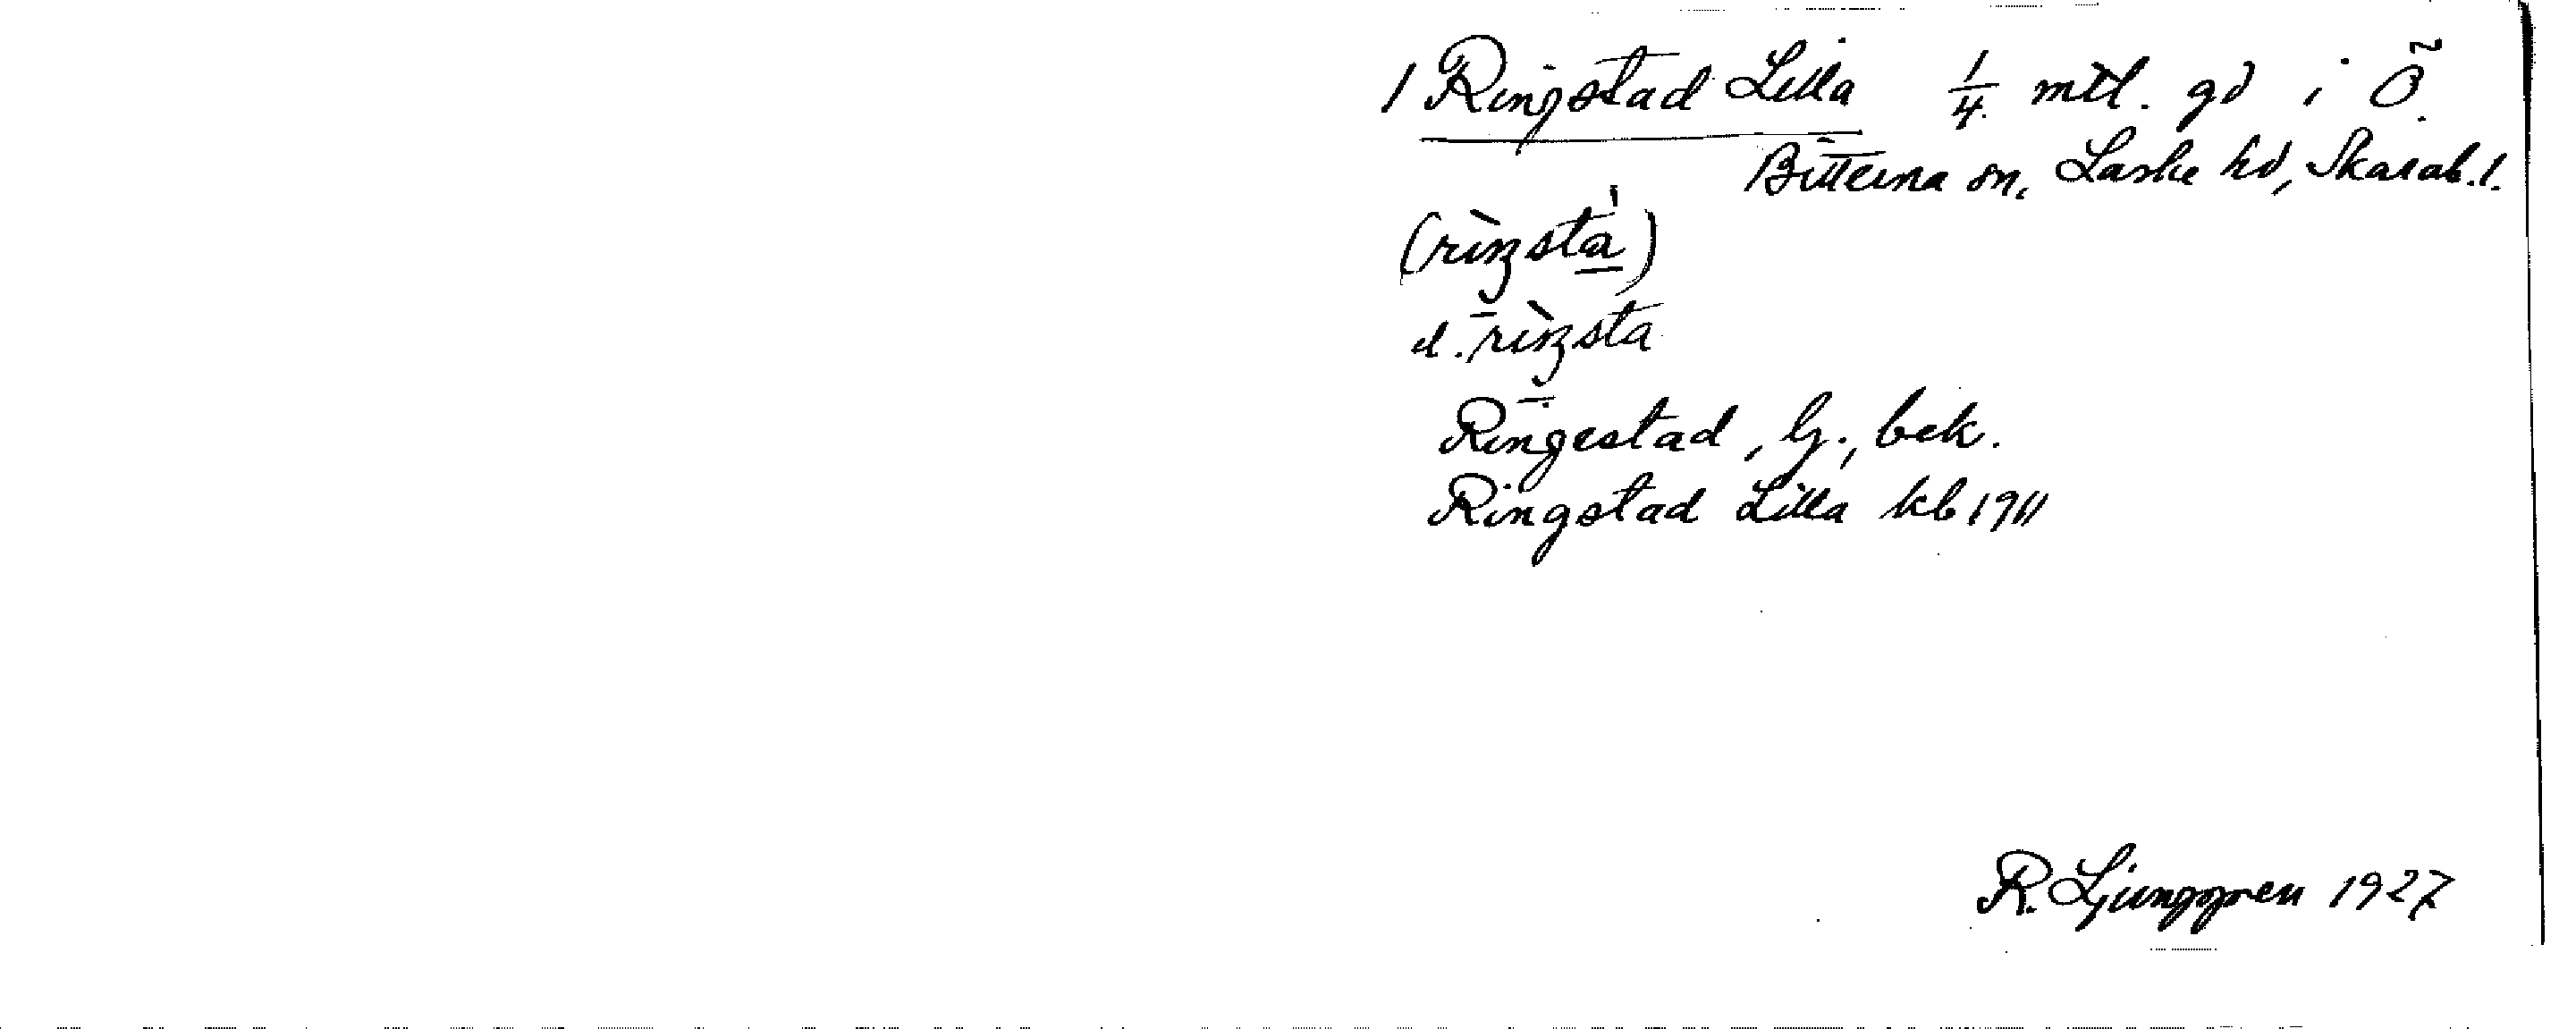 1 Ringstad Lilla 1/4 mtl. gd i Ö.
Bitterna sn, Laske hd, Skarab. l.
(rìŋsta̍)
d. rìŋsta
Ringestad, lj., bek.
Ringstad Lilla kb 1911
R. Ljunggren 1927